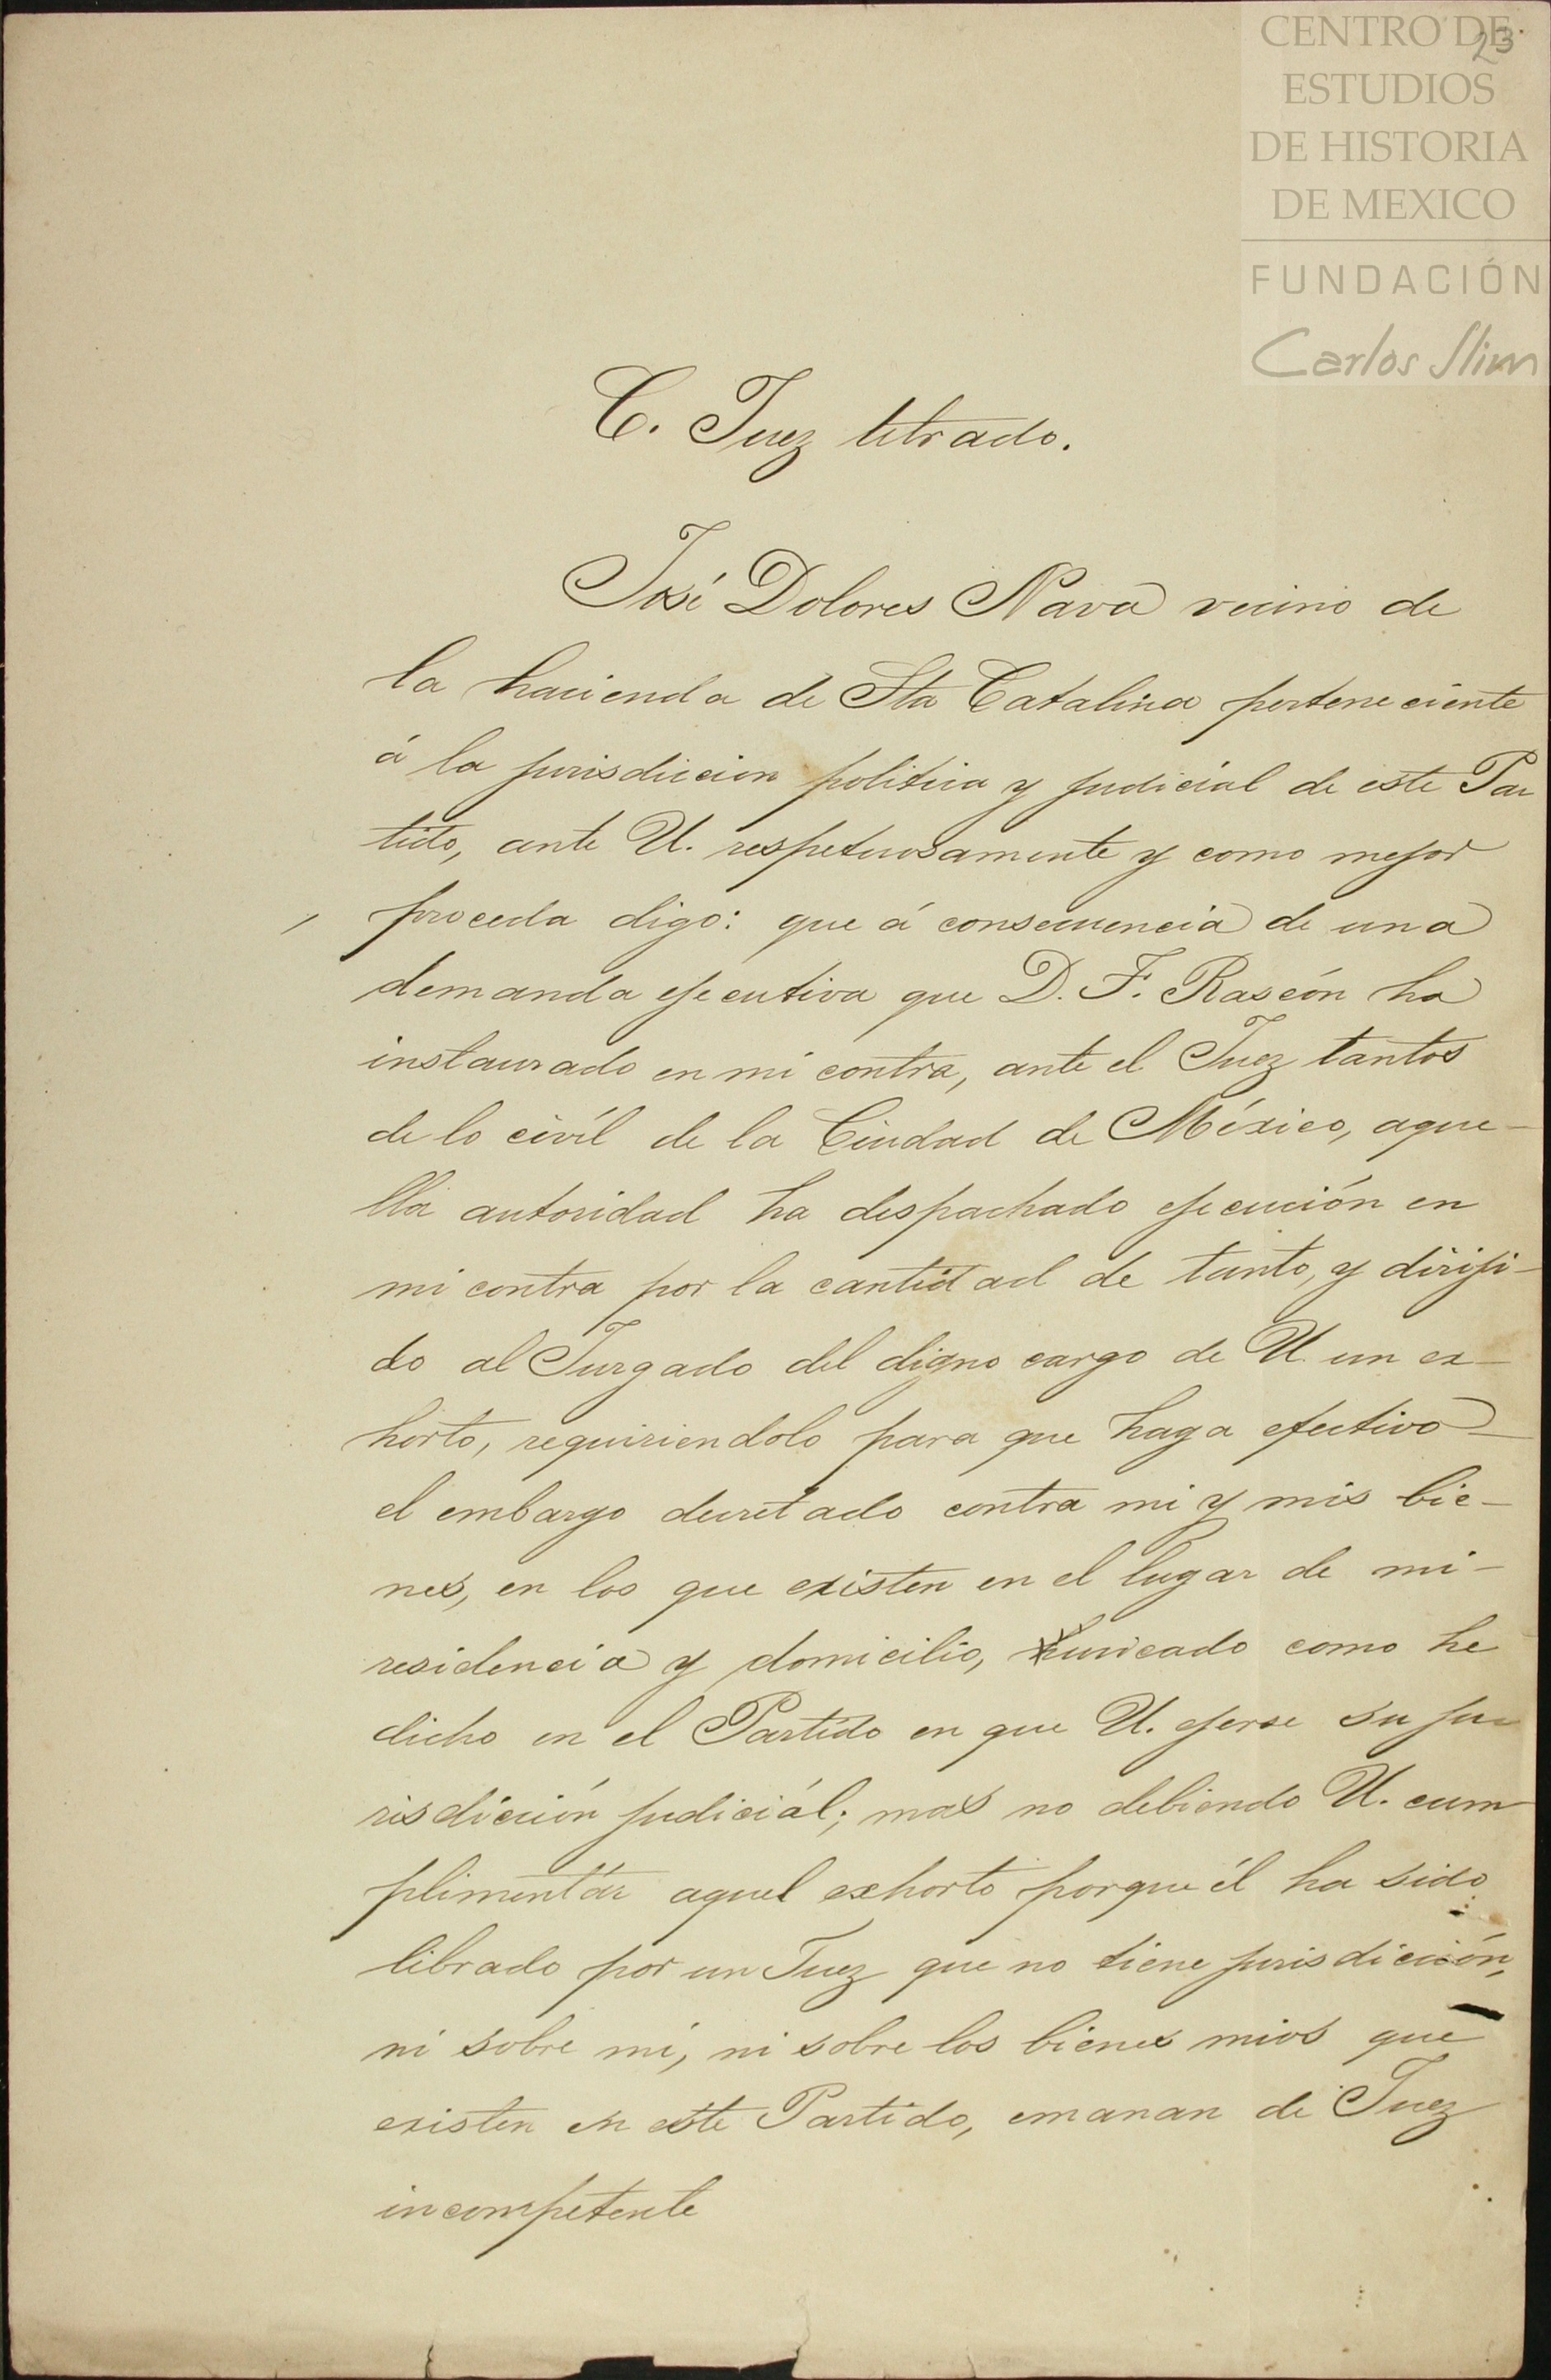 CENTRO DE
ESTUDIOS
DE HISTORIA
DE MEXICO
FUNDACIÓN
Carlos Slim
23.
C. Juez letrado.
José Dolores Nava vecino de
la hacienda de Sta Catalina perteneciente
á la jurisdiccion politica y judicial de este Par
tido, ante U. respetuosamente y como mejor
proceda digo: que á consecuencia de una
demanda ejecutiva que D. F. Rascón ha
instaurado en mi contra, ante el Juez tantos
de lo civíl de la Ciudad de México, aque-
lla autoridad ha despachado ejecución en
mi contra por la cantidad de tanto, y diriji-
do al Jurgado del digno cargo de U. un ex-
horto, requiriendolo para que haga efectivo
el embargo decretado contra mi y mis bie-
nes, en los que existen en el lugar de mi-
residencia y domicilio, como he
dicho en el Partido en que U. ejerse su ju-
risdicción judiciál; mas no debiendo U. cum
plimentár aquel exhorto porque él ha sido
librado por un Juez que no tiene jurisdicción,
ni sobre mí, ni sobre los bienes mios que
existen en este Partido, emanan de Juez
incompetente